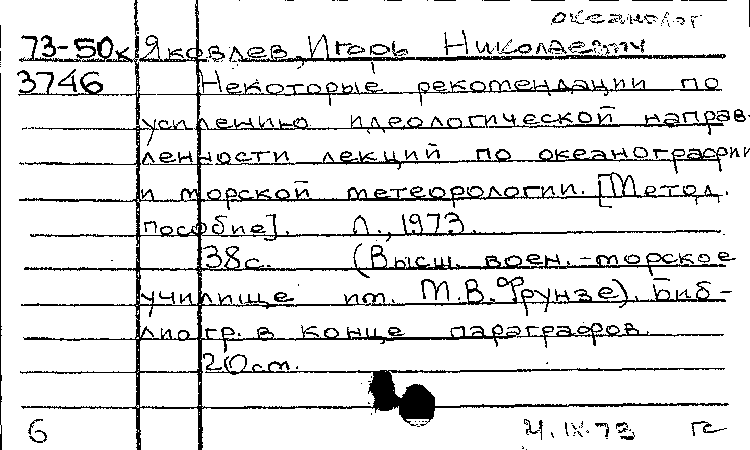 океанолог
73-50к Яковлев, Игорь Николаевич
3746 Некоторые рекомендации по
усилению идеологической направ-
ленности лекций по океанографии
и морской метеорологии. [Метод.
пособие]. Л., 1973.
38с. (Высш. воен.-морское
училище им. М.В.Фрунзе). Биб-
лиогр. в конце параграфов.
20см.
6 4.IX.73